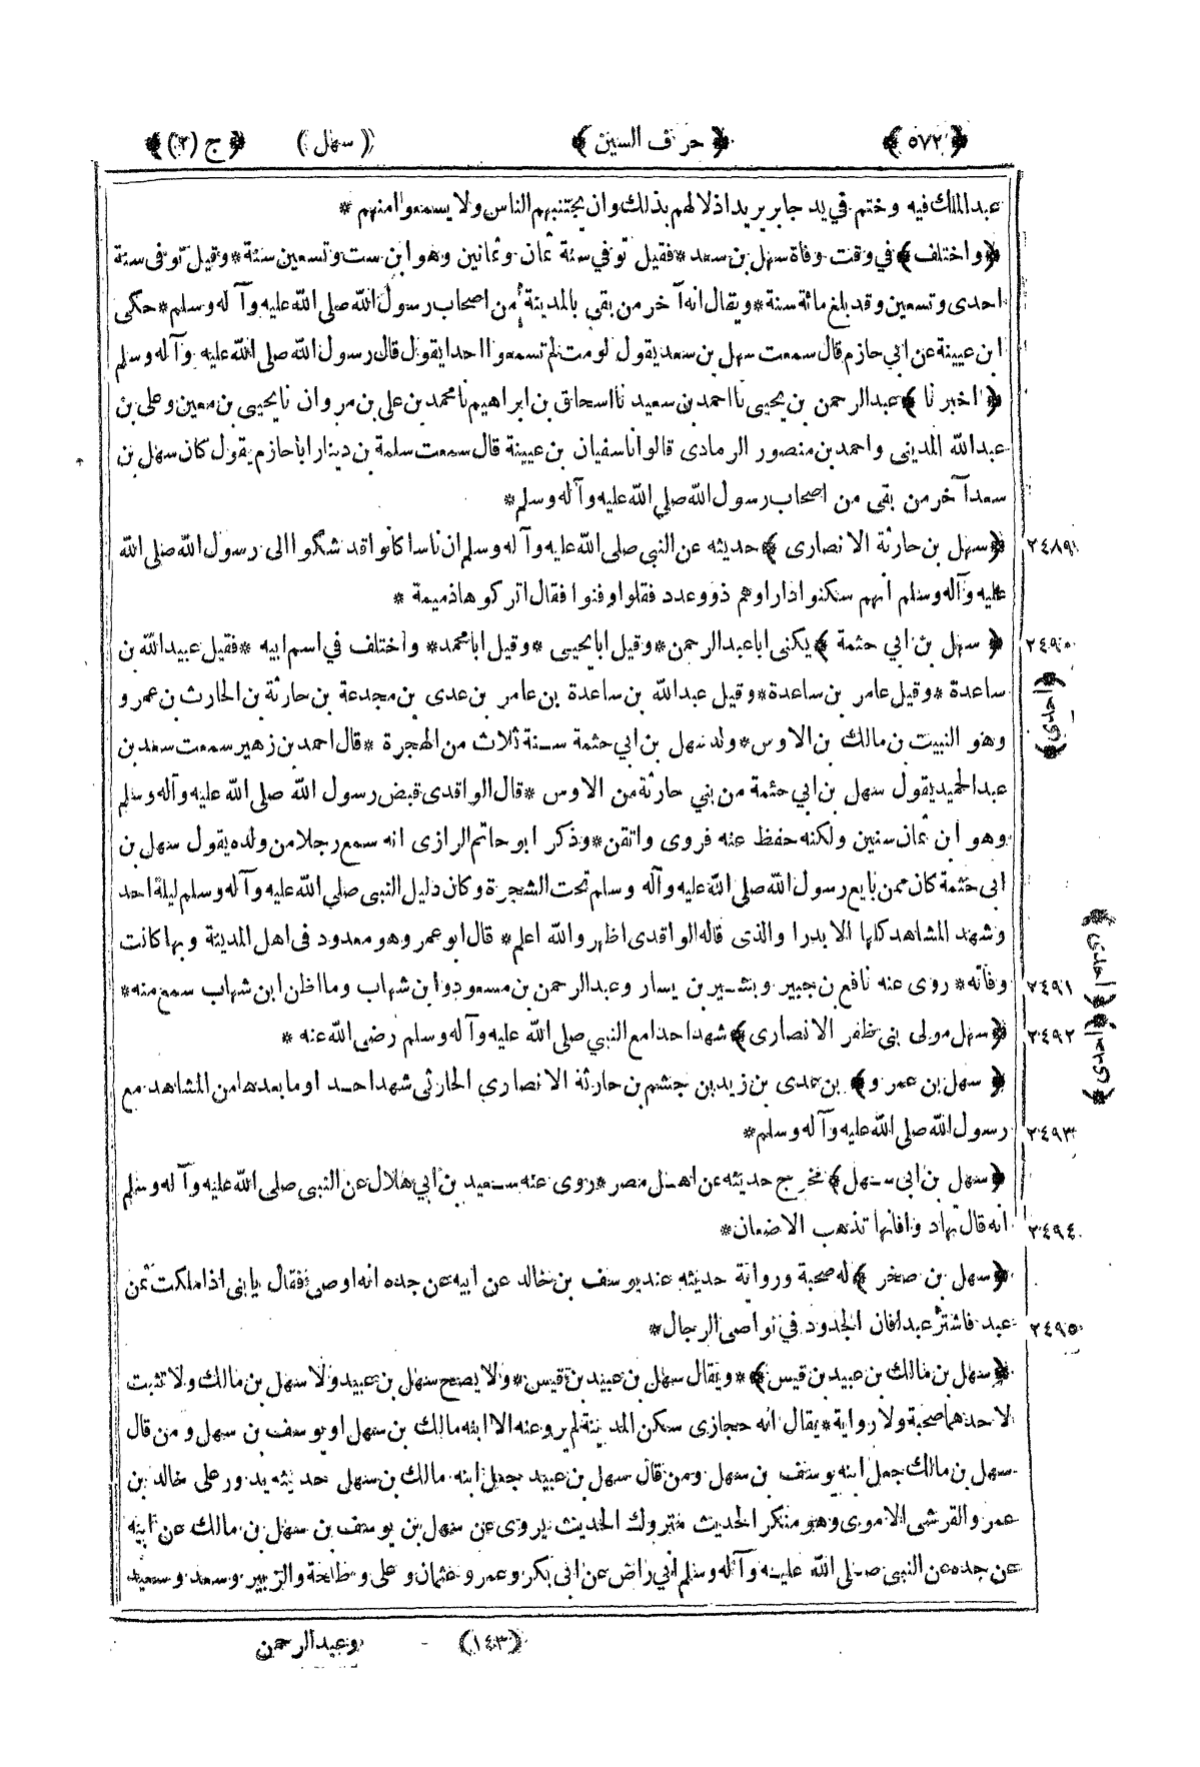 ﴿٥٧٢﴾ ﴿حرف السين﴾ (سهل) ﴿ج (٢)﴾
عبدالملك فيه وختم في يد جابر يريد اذلالهم بذلك وان يجتنبهم الناس ولا يسمعوا منهم *
﴿واختلف﴾ في وقت وفاة سهل بن سعد * فقيل توفي سنة ثمان وثمانين وهو ابن ست وتسعين سنة * وقيل توفى سنة
احدى وتسعين وقد بلغ مائة سنة * ويقال انه آخر من بقى بالمدينة من اصحاب رسول الله صلى الله عليه وآله وسلم * حكى
ابن عيينة عن ابي حازم قال سمعت سهل بن سعد يقول لو مت لم تسمعوا احدا يقول قال رسول الله صلى الله عليه وآله وسلم
﴿اخبرنا﴾ عبدالرحمن بن يحيى نا احمد بن سعيد نا اسحاق بن ابراهيم نا محمد بن على بن مروان نا يحيى بن معين وعلى بن
عبدالله المديني واحمد بن منصور الرمادى قالوا نا سفيان بن عيينة قال سمعت سلمة بن دينار ابا حازم يقول كان سهل بن
سعد آخر من بقى من اصحاب رسول الله صلى الله عليه وآله وسلم *
٢٤٨٩ ﴿سهل بن حارثة الانصارى﴾ حديثه عن النبي صلى الله عليه وآله وسلم ان ناسا كانوا قد شكوا الى رسول الله صلى الله
عليه وآله وسلم انهم سكنوا دارا وهم ذوو عدد فقلوا وفنوا فقال اتركوها ذميمة *
٢٤٩٠ ﴿سهل بن ابي حثمة﴾ يكنى ابا عبدالرحمن * وقيل ابا يحيى * وقيل ابا محمد * واختلف في اسم ابيه * فقيل عبيدالله بن
ساعدة * وقيل عامر بن ساعدة * وقيل عبدالله بن ساعدة بن عامر بن عدى بن مجدعة بن حارثة بن الحارث بن عمرو
﴿احدى﴾
وهو النبيت بن مالك بن الاوس * ولد سهل بن ابي حثمة سنة ثلاث من الهجرة * قال احمد بن زهير سمعت سعد بن
عبدالحميد يقول سهل بن ابي حثمة من بني حارثة من الاوس * قال الواقدى قبض رسول الله صلى الله عليه وآله وسلم
وهو ابن ثمان سنين ولكنه حفظ عنه فروى واتقن * وذكر ابو حاتم الرازى انه سمع رجلا من ولده يقول سهل بن
ابى حثمة كان ممن بايع رسول الله صلى الله عليه وآله وسلم تحت الشجرة وكان دليل النبى صلى الله عليه وآله وسلم ليلة احد
وشهد المشاهد كلها الا بدرا والذى قاله الواقدى اظهر والله اعلم * قال ابو عمر وهو معدود فى اهل المدينة وبها كانت
وفاته * روى عنه نافع بن جبير وبشير بن يسار وعبدالرحمن بن مسعود وابن شهاب وما اظن ابن شهاب سمع منه *
٢٤٩١
﴿احدى﴾ ﴿احدى﴾
٢٤٩٢ ﴿سهل مولى بنى ظفر الانصارى﴾ شهد احدا مع النبي صلى الله عليه وآله وسلم رضى الله عنه *
﴿سهل بن عمرو﴾ بن عدى بن زيد بن جشم بن حارثة الانصاري الحارثى شهد احد او ما بعدها من المشاهد مع
٢٤٩٣ رسول الله صلى الله عليه وآله وسلم *
﴿سهل بن ابى سهل﴾ مخرج حديثه عن اهل مصر * روى عنه سعيد بن ابي هلال عن النبى صلى الله عليه وآله وسلم
٢٤٩٤ انه قال تهادوا فانها تذهب الاضغان *
﴿سهل بن صخر﴾ له صحبة ورواية حديثه عند يوسف بن خالد عن ابيه عن جده انه اوصى فقال يا بنى اذا ملكت ثمن
٢٤٩٥ عبد فاشتر عبدا فان الجدود في نواصى الرجال *
﴿سهل بن مالك بن عبيد بن قيس﴾ * ويقال سهل بن عبيد بن قيس * ولا يصح سهل بن عبيد ولا سهل بن مالك ولا تثبت
لاحدهما صحبة ولا رواية * يقال انه حجازى سكن المدينة لم يرو عنه الا ابنه مالك بن سهل او يوسف بن سهل ومن قال
سهل بن مالك جعل ابنه يوسف بن سهل ومن قال سهل بن عبيد جعل ابنه مالك بن سهل حديثه يدور على خالد بن
عمرو القرشى الاموى وهو منكر الحديث متروك الحديث يروى عن سهل بن يوسف بن سهل بن مالك عن ابيه
عن جده عن النبى صلى الله عليه وآله وسلم انى راض عن ابى بكر وعمر وعثمان وعلى وطلحة والزبير وسعد وسعيد
(١٤٣) وعبدالرحمن